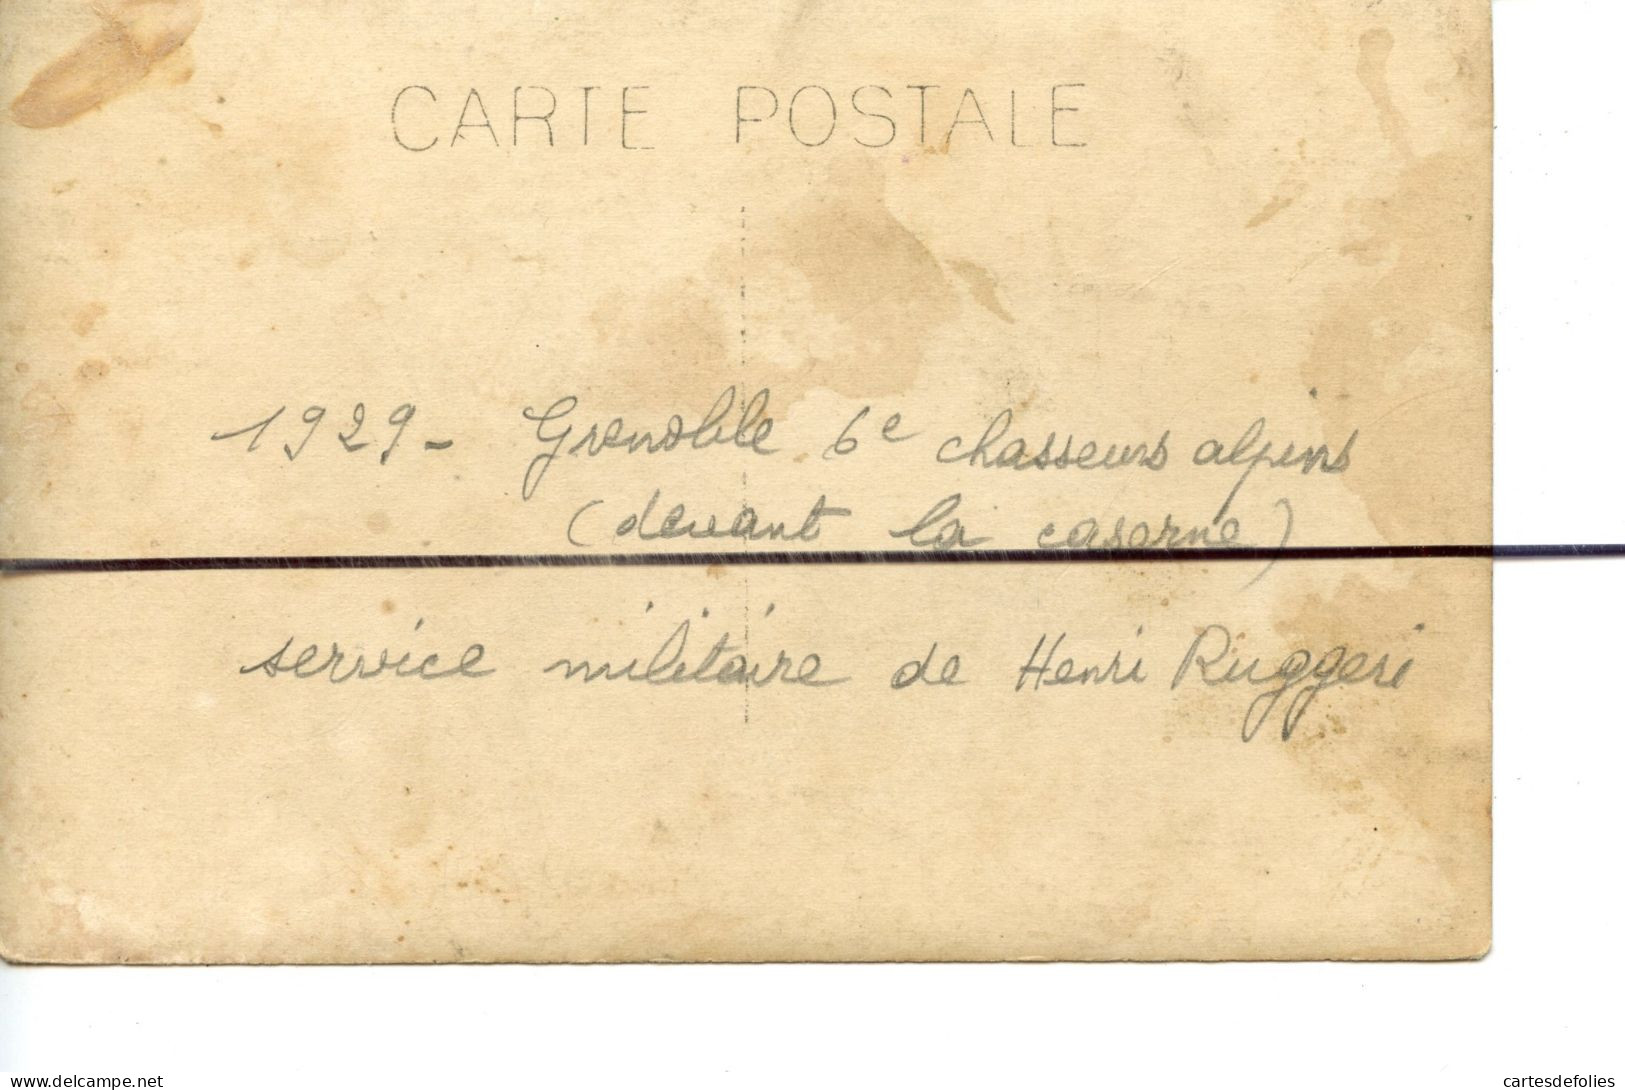 CARTE POSTALE
1929 - Grenoble 6e chasseurs alpins
(devant la caserne)
service militaire de Henri Ruggeri
www.delcampe.net
cartesdefolies